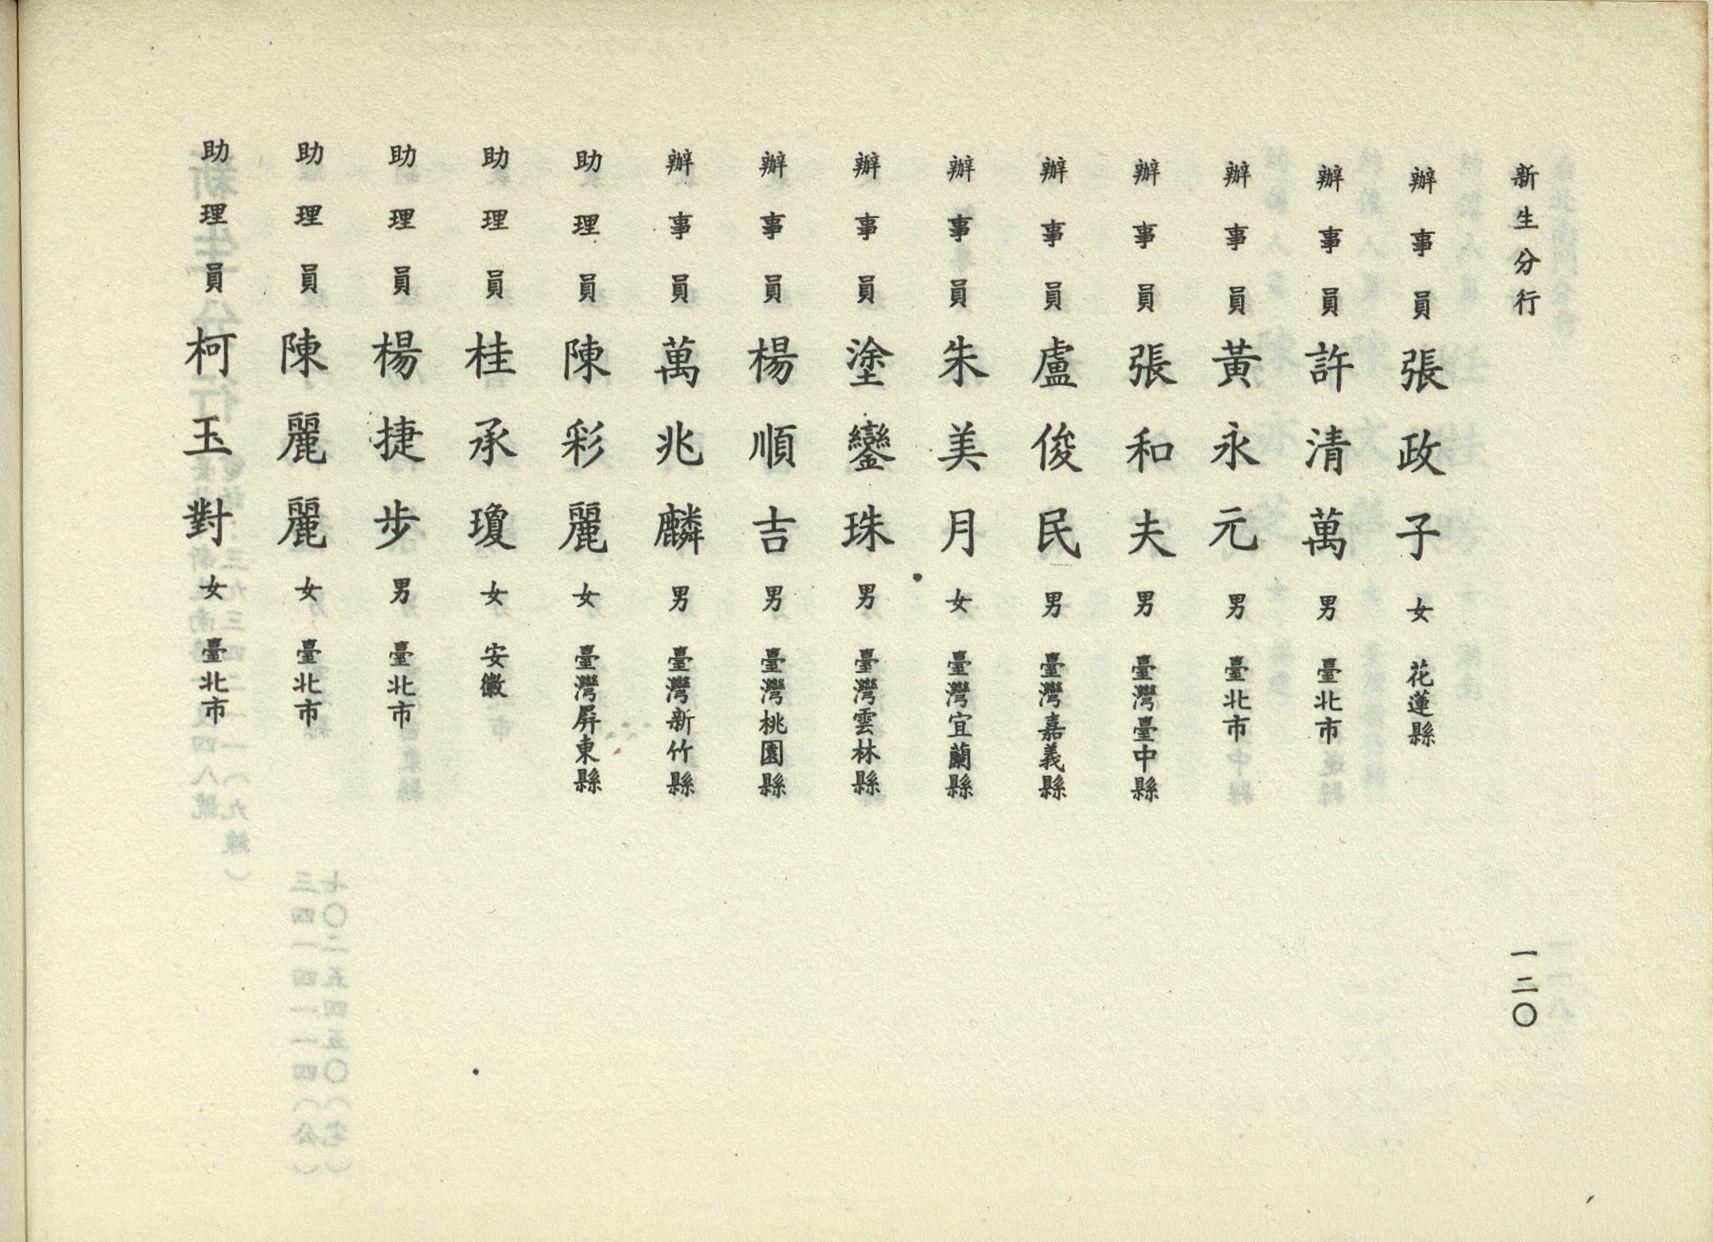 新生分行
一二〇
辦事員 張政子 女 花蓮縣
辦事員 許清萬 男 臺北市
辦事員 黃永元 男 臺北市
辦事員 張和夫 男 臺灣臺中縣
辦事員 盧俊民 男 臺灣嘉義縣
辦事員 朱美月 女 臺灣宜蘭縣
辦事員 塗鑾珠 男 臺灣雲林縣
辦事員 楊順吉 男 臺灣桃園縣
辦事員 萬兆麟 男 臺灣新竹縣
助理員 陳彩麗 女 臺灣屏東縣
助理員 桂承瓊 女 安徽
助理員 楊捷步 男 臺北市
助理員 陳麗麗 女 臺北市
助理員 柯玉對 女 臺北市